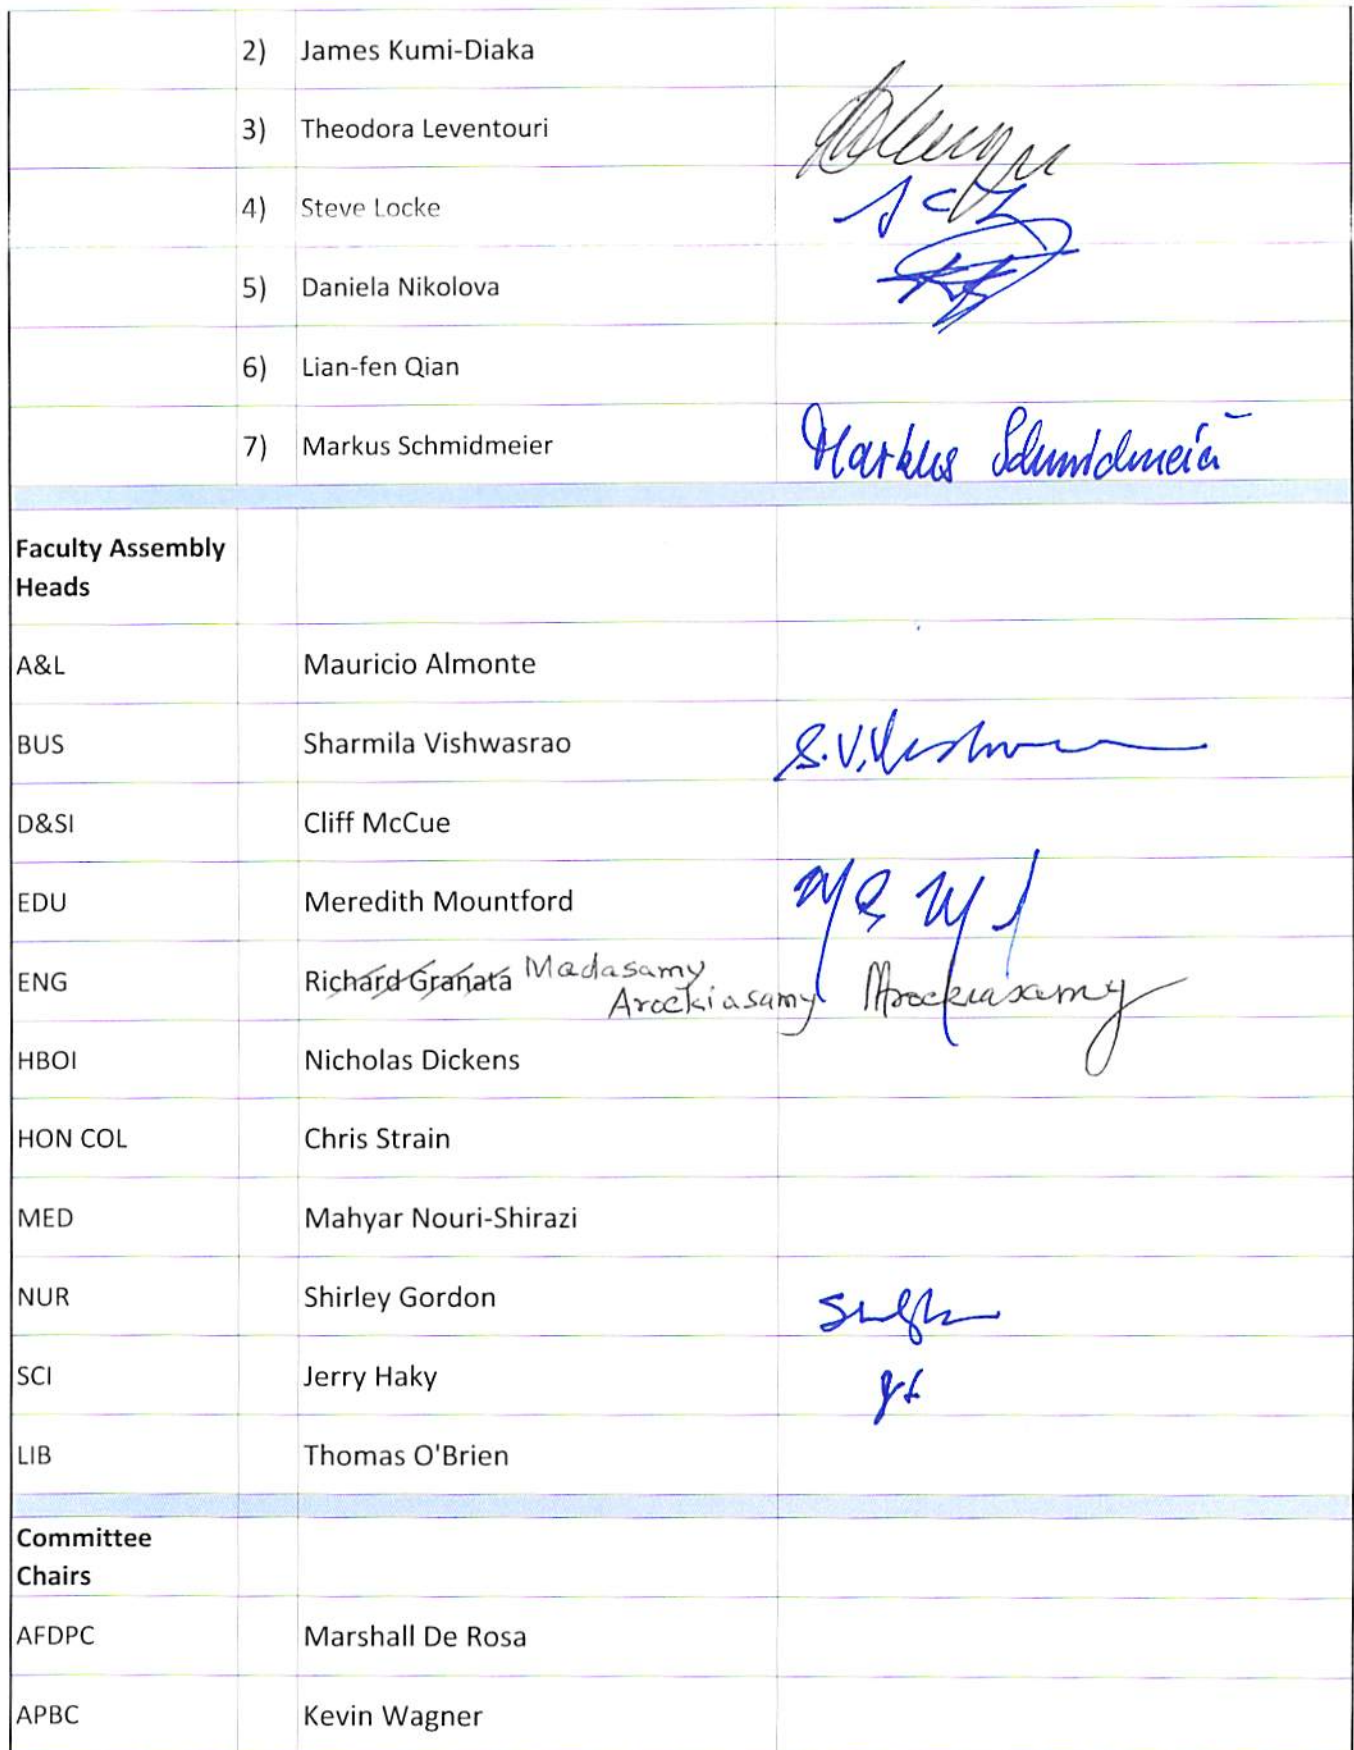 2) James Kumi-Diaka
3) Theodora Leventouri
4) Steve Locke
5) Daniela Nikolova
6) Lian-fen Qian
7) Markus Schmidmeier Markus Schmidmeier
Faculty Assembly
Heads
A&L Mauricio Almonte
BUS Sharmila Vishwasrao
D&SI Cliff McCue
EDU Meredith Mountford
ENG Richard Granata Madasamy
Arockiasamy Arockiasamy
HBOI Nicholas Dickens
HON COL Chris Strain
MED Mahyar Nouri-Shirazi
NUR Shirley Gordon
SCI Jerry Haky
LIB Thomas O'Brien
Committee
Chairs
AFDPC Marshall De Rosa
APBC Kevin Wagner